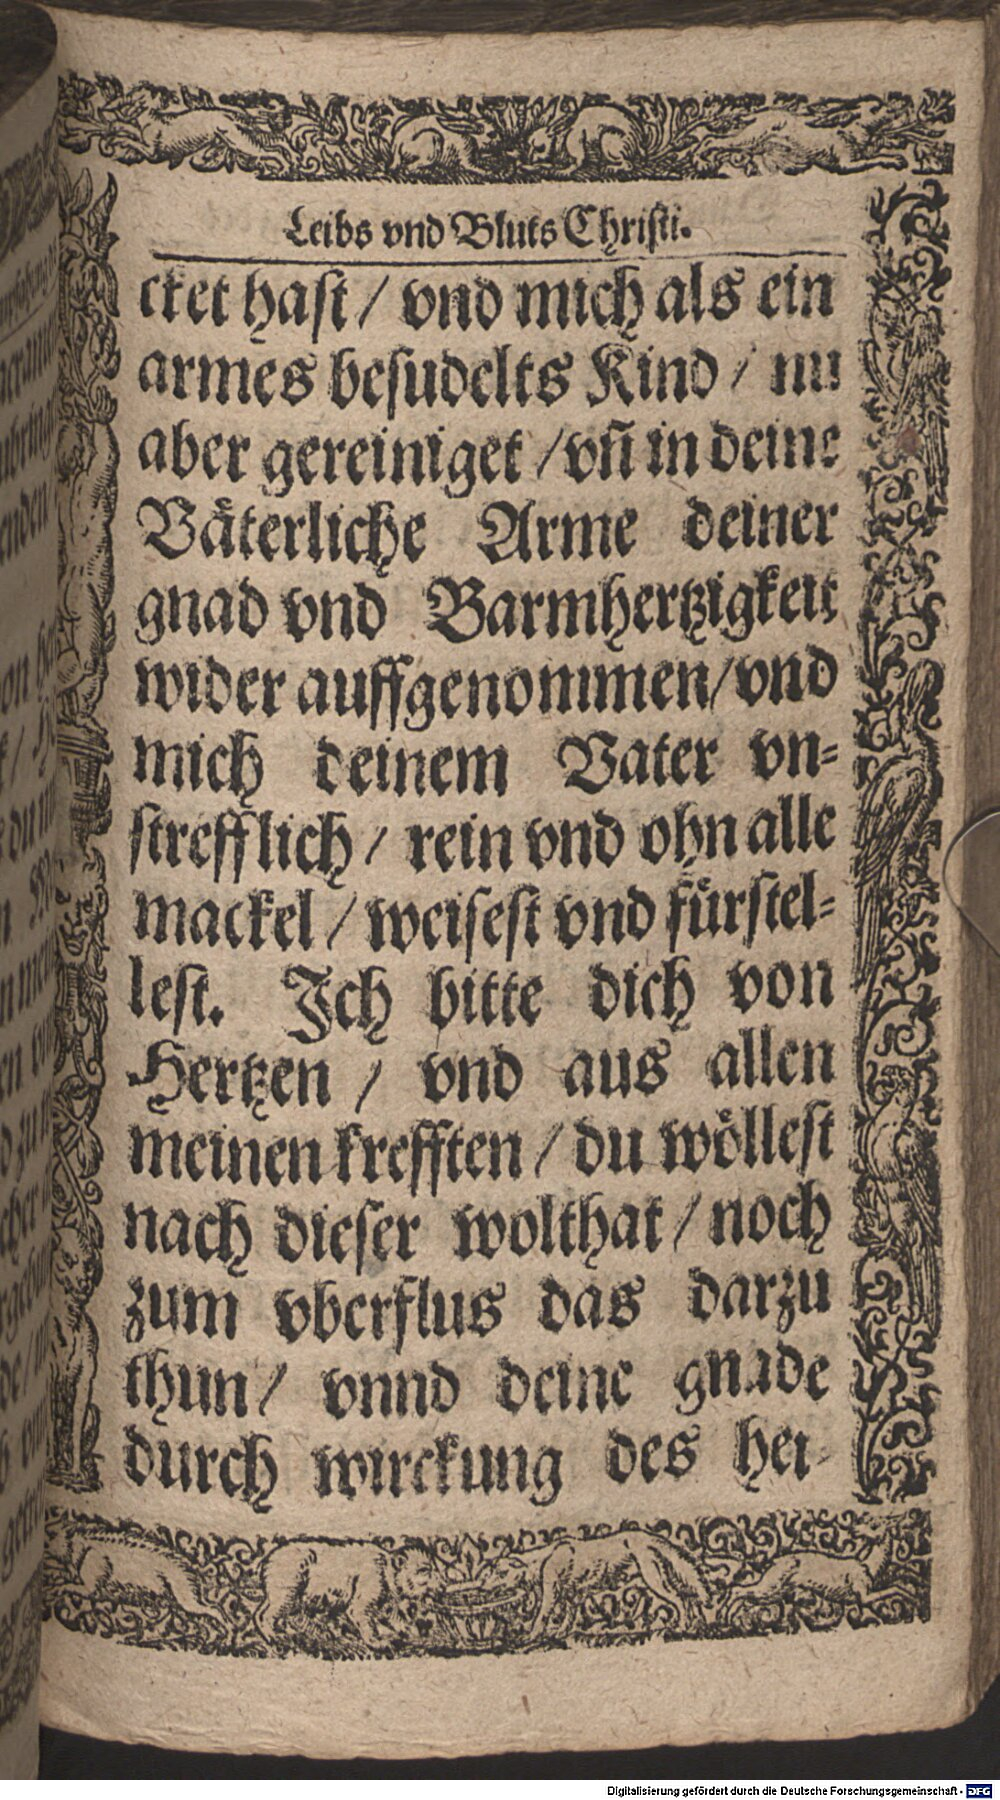 Leibs vnd Bluts Christi.
cket hast / vnd mich als ein
armes besudelts Kind / nu
aber gereiniget / vn̄ in deine
Vaͤterliche Arme deiner
gnad vnd Barmhertzigkeit
wider auffgenommen / vnd
mich deinem Vater vn-
strefflich / rein vnd ohn alle
mackel / weisest vnd fuͤrstel-
lest. Ich bitte dich von
Hertzen / vnd aus allen
meinen krefften / du woͤllest
nach dieser wolthat / noch
zum vberflus das darzu
thun / vnnd deine gnade
durch wirckung des hei-
Digitalisierung gefördert durch die Deutsche Forschungsgemeinschaft - DFG